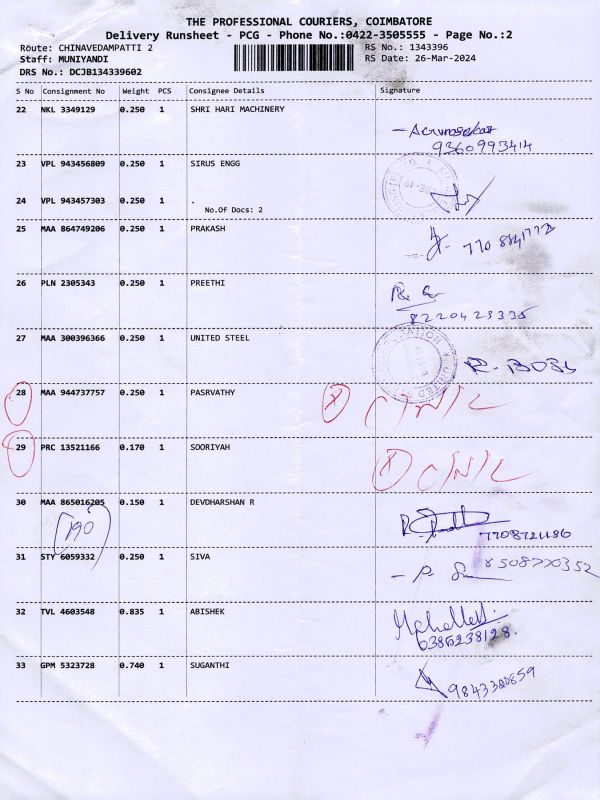 THE PROFESSIONAL COURIERS, COIMBATORE
Delivery Runsheet - PCG - Phone No.:0422-3505555 - Page No.:2
Route: CHINAVEDAMPATTI 2 RS No.: 1343396
Staff: MUNIYANDI RS Date: 26-Mar-2024
DRS No.: DCJB134339602
S No Consignment No Weight PCS Consignee Details Signature
22 NKL 3349129 0.250 1 SHRI HARI MACHINERY
9360993414
23 VPL 943456809 0.250 1 SIRUS ENGG
24 VPL 943457303 0.250 1 .
No.Of Docs: 2
25 MAA 864749206 0.250 1 PRAKASH
26 PLN 2305343 0.250 1 PREETHI
8220423335
27 MAA 300396366 0.250 1 UNITED STEEL
28 MAA 944737757 0.250 1 PASRVATHY C/N/L
29 PRC 13521166 0.170 1 SOORIYAH C/N/L
30 MAA 865016205 0.150 1 DEVDHARSHAN R
190
7708721186
31 STY 6059332 0.250 1 SIVA
8508770352
32 TVL 4603548 0.835 1 ABISHEK
6380238128.
33 GPM 5323728 0.740 1 SUGANTHI
9843320859